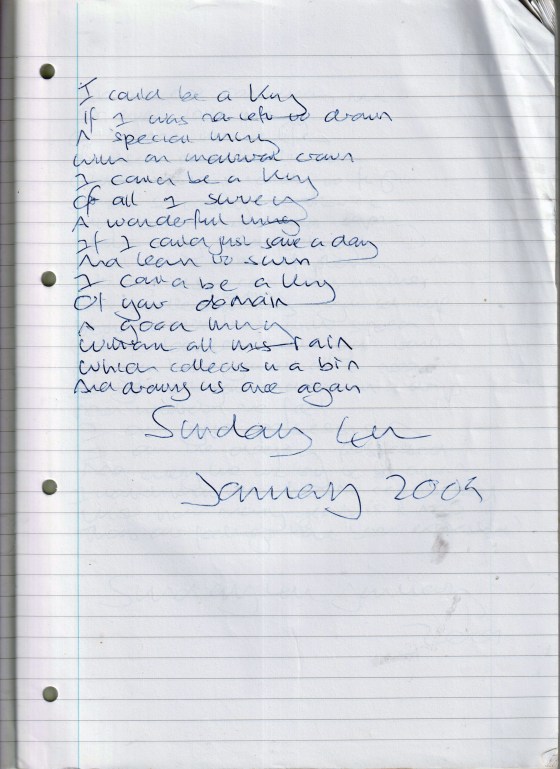 I could be a King
If I was  to drown
A special thing
With an  crown
I could be a King
Of all I survey
A wonderful thing
If I could just save a day
And learn to swim
I could be a King
Of your domain
A good thing
Without all this rain
Which collects in a bin
And drowns us  again
Sunday
January 2009